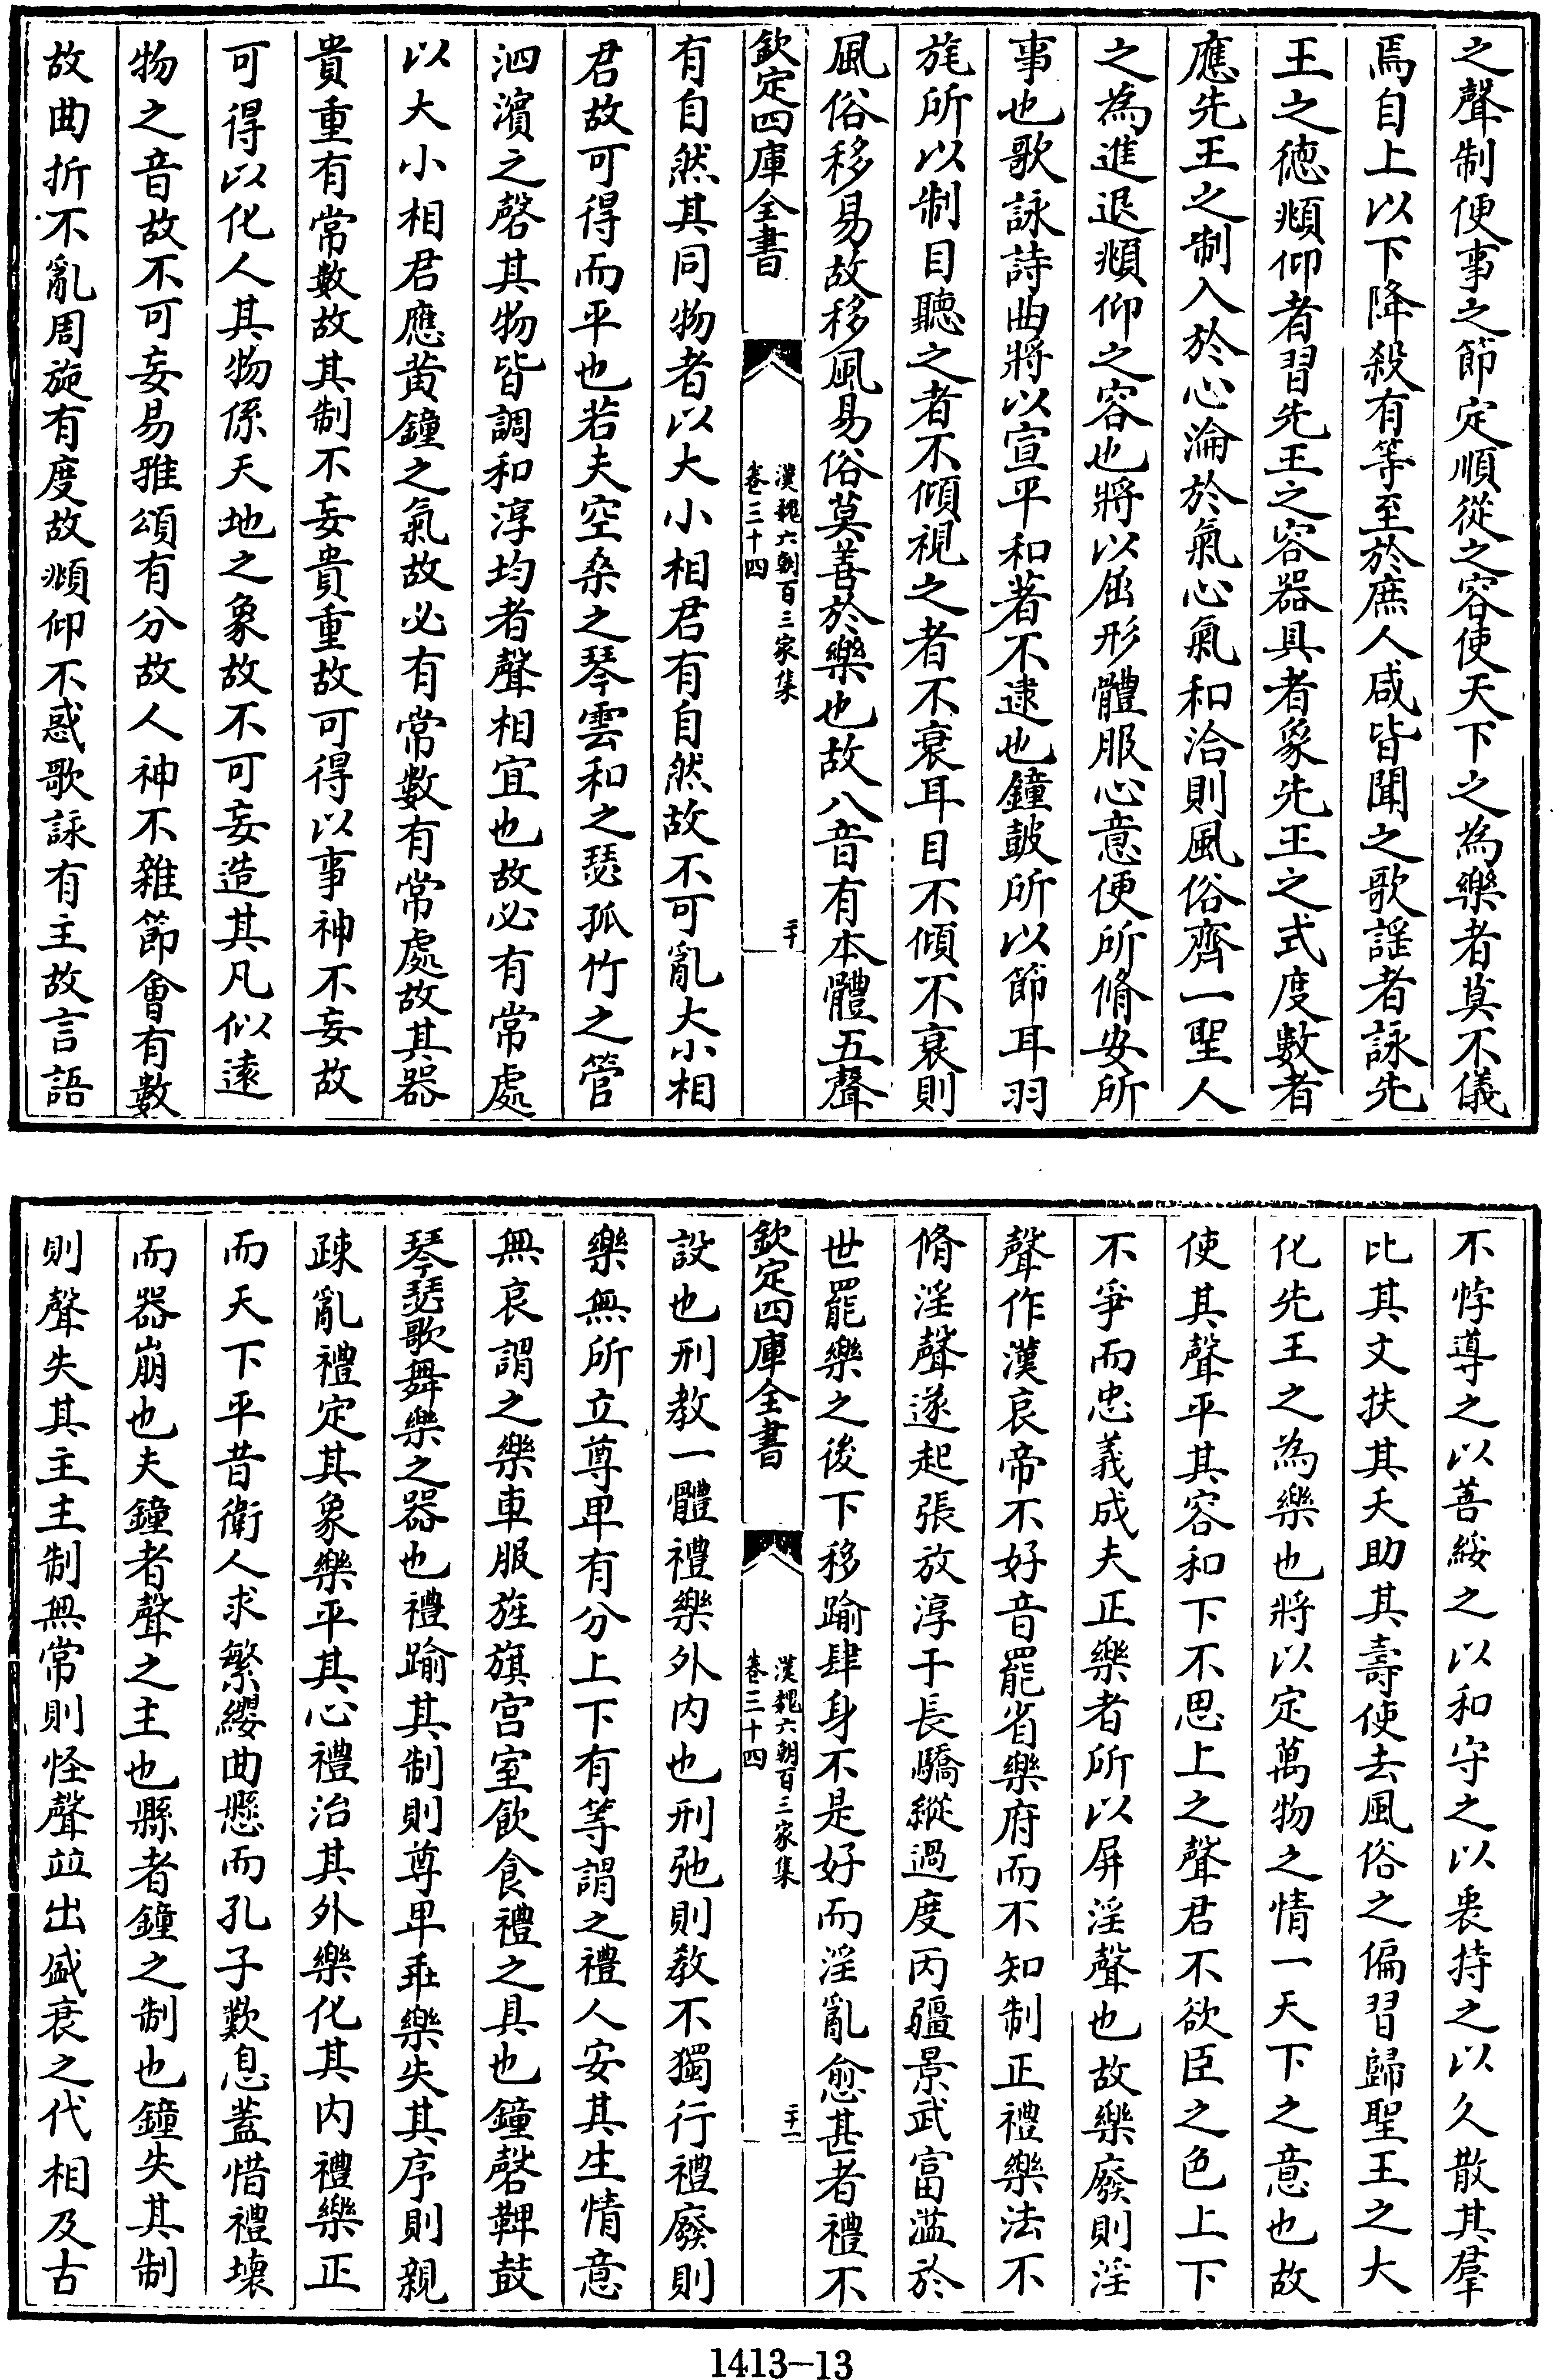 之聲制便事之節定順從之容使天下之為樂者莫不儀
焉自上以下降殺有等至於庶人咸皆聞之歌謡者詠先
王之徳頫仰者習先王之容器具者象先王之式度數者
應先王之制入於心淪於氣心氣和洽則風俗齊一聖人
之為進退頫仰之容也將以屈形體服心意便所脩安所
事也歌詠詩曲將以宣平和著不逮也鐘鼓所以節耳羽
旄所以制目聽之者不傾視之者不衰耳目不傾不衰則
風俗移易故移風易俗莫善於樂也故八音有本體五聲
欽定四庫全書
漢魏六朝百三家集
卷三十四
二十
有自然其同物者以大小相君有自然故不可亂大小相
君故可得而平也若夫空桑之琴雲和之瑟孤竹之管
泗濱之磬其物皆調和淳均者聲相宜也故必有常處
以大小相君應黄鐘之氣故必有常數有常處故其器
貴重有常數故其制不妄貴重故可得以事神不妄故
可得以化人其物係天地之象故不可妄造其凡似逺
物之音故不可妄易雅頌有分故人神不雜節會有數
故曲折不亂周旋有度故頫仰不惑歌詠有主故言語
不悖導之以善綏之以和守之以衷持之以久散其羣
比其文扶其夭助其壽使去風俗之偏習歸聖王之大
化先王之為樂也將以定萬物之情一天下之意也故
使其聲平其容和下不思上之聲君不欲臣之色上下
不爭而忠義成夫正樂者所以屏淫聲也故樂廢則淫
聲作漢哀帝不好音罷省樂府而不知制正禮樂法不
脩淫聲遂起張放淳于長驕縱過度丙疆景武富溢於
世罷樂之後下移踰肆身不是好而淫亂愈甚者禮不
欽定四庫全書
漢魏六朝百三家集
卷三十四
二十一
設也刑教一體禮樂外内也刑弛則教不獨行禮廢則
樂無所立尊卑有分上下有等謂之禮人安其生情意
無哀謂之樂車服旌旗宫室飲食禮之具也鐘磬鞞鼓
琴瑟歌舞樂之器也禮踰其制則尊卑乖樂失其序則親
疎亂禮定其象樂平其心禮治其外樂化其内禮樂正
而天下平昔衛人求繁纓曲懸而孔子歎息蓋惜禮壊
而器崩也夫鐘者聲之主也縣者鐘之制也鐘失其制
則聲失其主主制無常則怪聲竝出盛衰之代相及古
1413—13